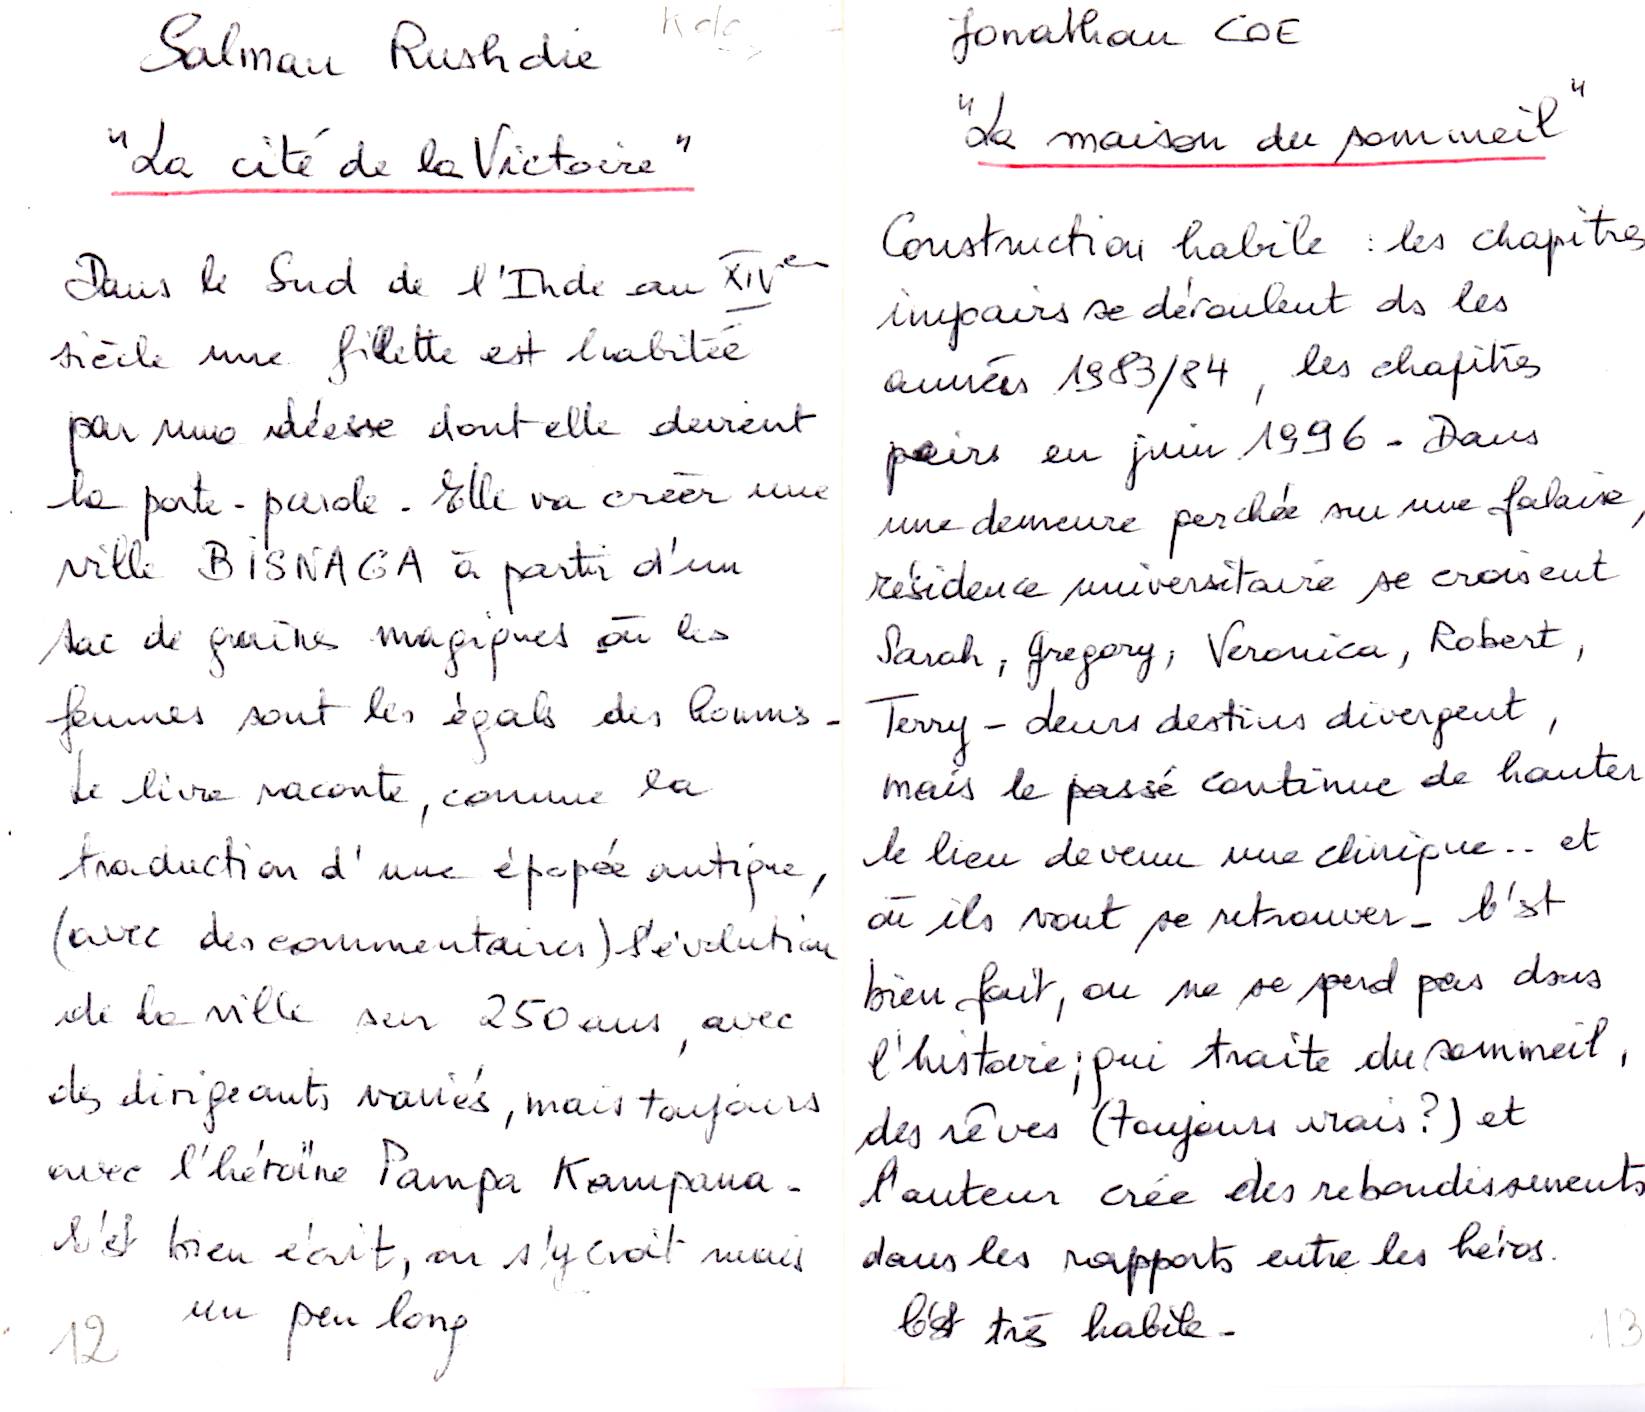 Salman Rushdie
"La cité de la Victoire"
Dans le Sud de l'Inde au XIVe
siècle une fillette est habitée
par une déesse dont elle devient
la porte-parole. Elle va créer une
ville BISNAGA à partir d'un
sac de graines magiques où les
femmes sont les égals des hommes.
Le livre raconte, comme la
traduction d'une épopée antique,
(avec des commentaires) l'évolution
de la ville sur 250 ans, avec
des dirigeants variés, mais toujours
avec l'héroïne Pampa Kampana.
C'est bien écrit, on s'y croit mais
un peu long
12
Jonathan COE
"La maison du sommeil"
Construction habile : les chapitres
impairs se déroulent ds les
années 1983/84, les chapitres
pairs en juin 1996. Dans
une demeure perchée sur une falaise,
résidence universitaire se croisent
Sarah, Gregory, Veronica, Robert,
Terry - Leurs destins divergent,
mais le passé continue de hanter
le lieu devenu une clinique.. et
où ils vont se retrouver. C'est
bien fait, on ne se perd pas dans
l'histoire; qui traite du sommeil,
des rêves (toujours vrais?) et
l'auteur crée des rebondissements
dans les rapports entre les héros.
C'est très habile.
13